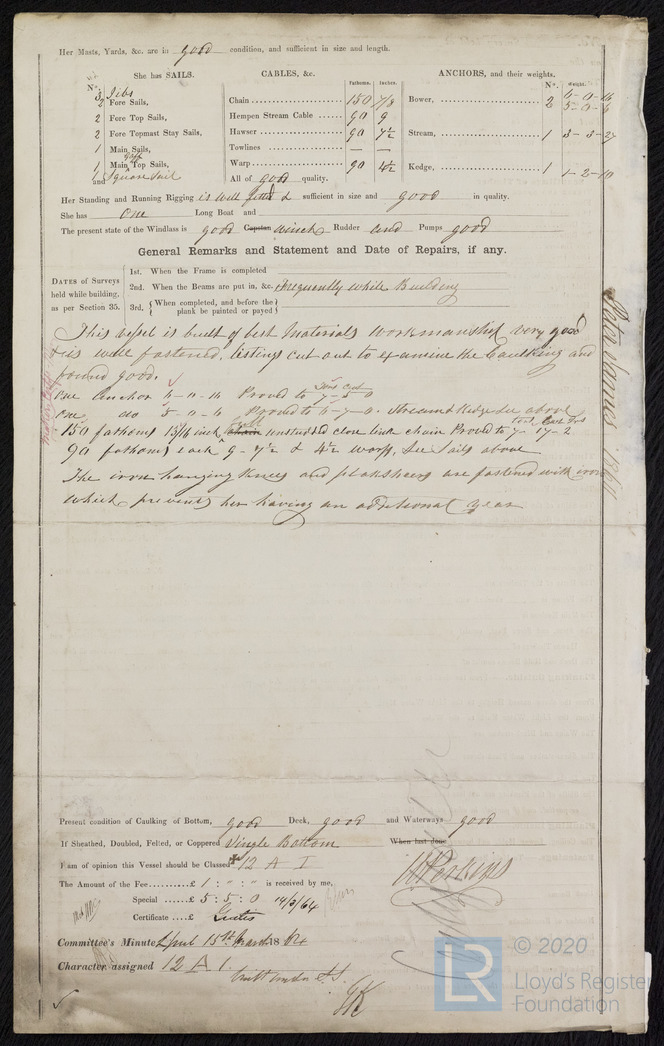 Her Masts, Yards, &c. are in good condition, and sufficient in size and length.
She has SAILS. CABLES, &c. Fathoms. Inches. ANCHORS, and their weights. Nº. Weight.
Nº.
3 Jibs
2 Fore Sails, Chain 150 7/8 Bower, 2 6-0-16
5-0-6
2 Fore Top Sails, Hempen Stream Cable 90 9
2 Fore Topmast Stay Sails, Hawser 90 7½ Stream, 1 3-3-27
1 Main Sails, Towlines — —
1 Main Gaff Top Sails, Warp 90 4½ Kedge, 1 1-2-10
1 and Square Sail All of good quality.
Her Standing and Running Rigging is well fitted & sufficient in size and good in quality.
She has one Long Boat and
The present state of the Windlass is good Capstan winch Rudder and Pumps good
General Remarks and Statement and Date of Repairs, if any.
DATES of Surveys held while building, as per Section 35.
1st. When the Frame is completed
2nd. When the Beams are put in, &c. Frequently while Building
3rd. When completed, and before the plank be painted or payed
This vessel is built of best Materials workmanship very good
& is well fastened, listings cut out to examine the Caulking and
found good.
One Anchor 6-0-16 Proved to 7-5-0
One do 5-0-6 Proved to 6-7-0. Stream & Kedge see above
150 fathoms 13/16 inch Chain unstudded close link chain Proved to 7-17-2
90 fathoms each 9-7½ & 4½ warps, See Sails above
The iron hanging knees and are fastened with iron
which prevents her having an additional year
Peter James
Present condition of Caulking of Bottom, good Deck, good and Waterways good
If Sheathed, Doubled, Felted, or Coppered Single Bottom When last done
I am of opinion this Vessel should be Classed 12 A 1
The Amount of the Fee £ 1 : " : " is received by me,
W Perkins
Special £ 5 : 5 : 0 14/3/64
Certificate £ Gratis
Committee's Minute, April 15th March 1864
Character assigned 12 A 1.
Built under S.S.
LR
© 2020
Lloyd's Register
Foundation